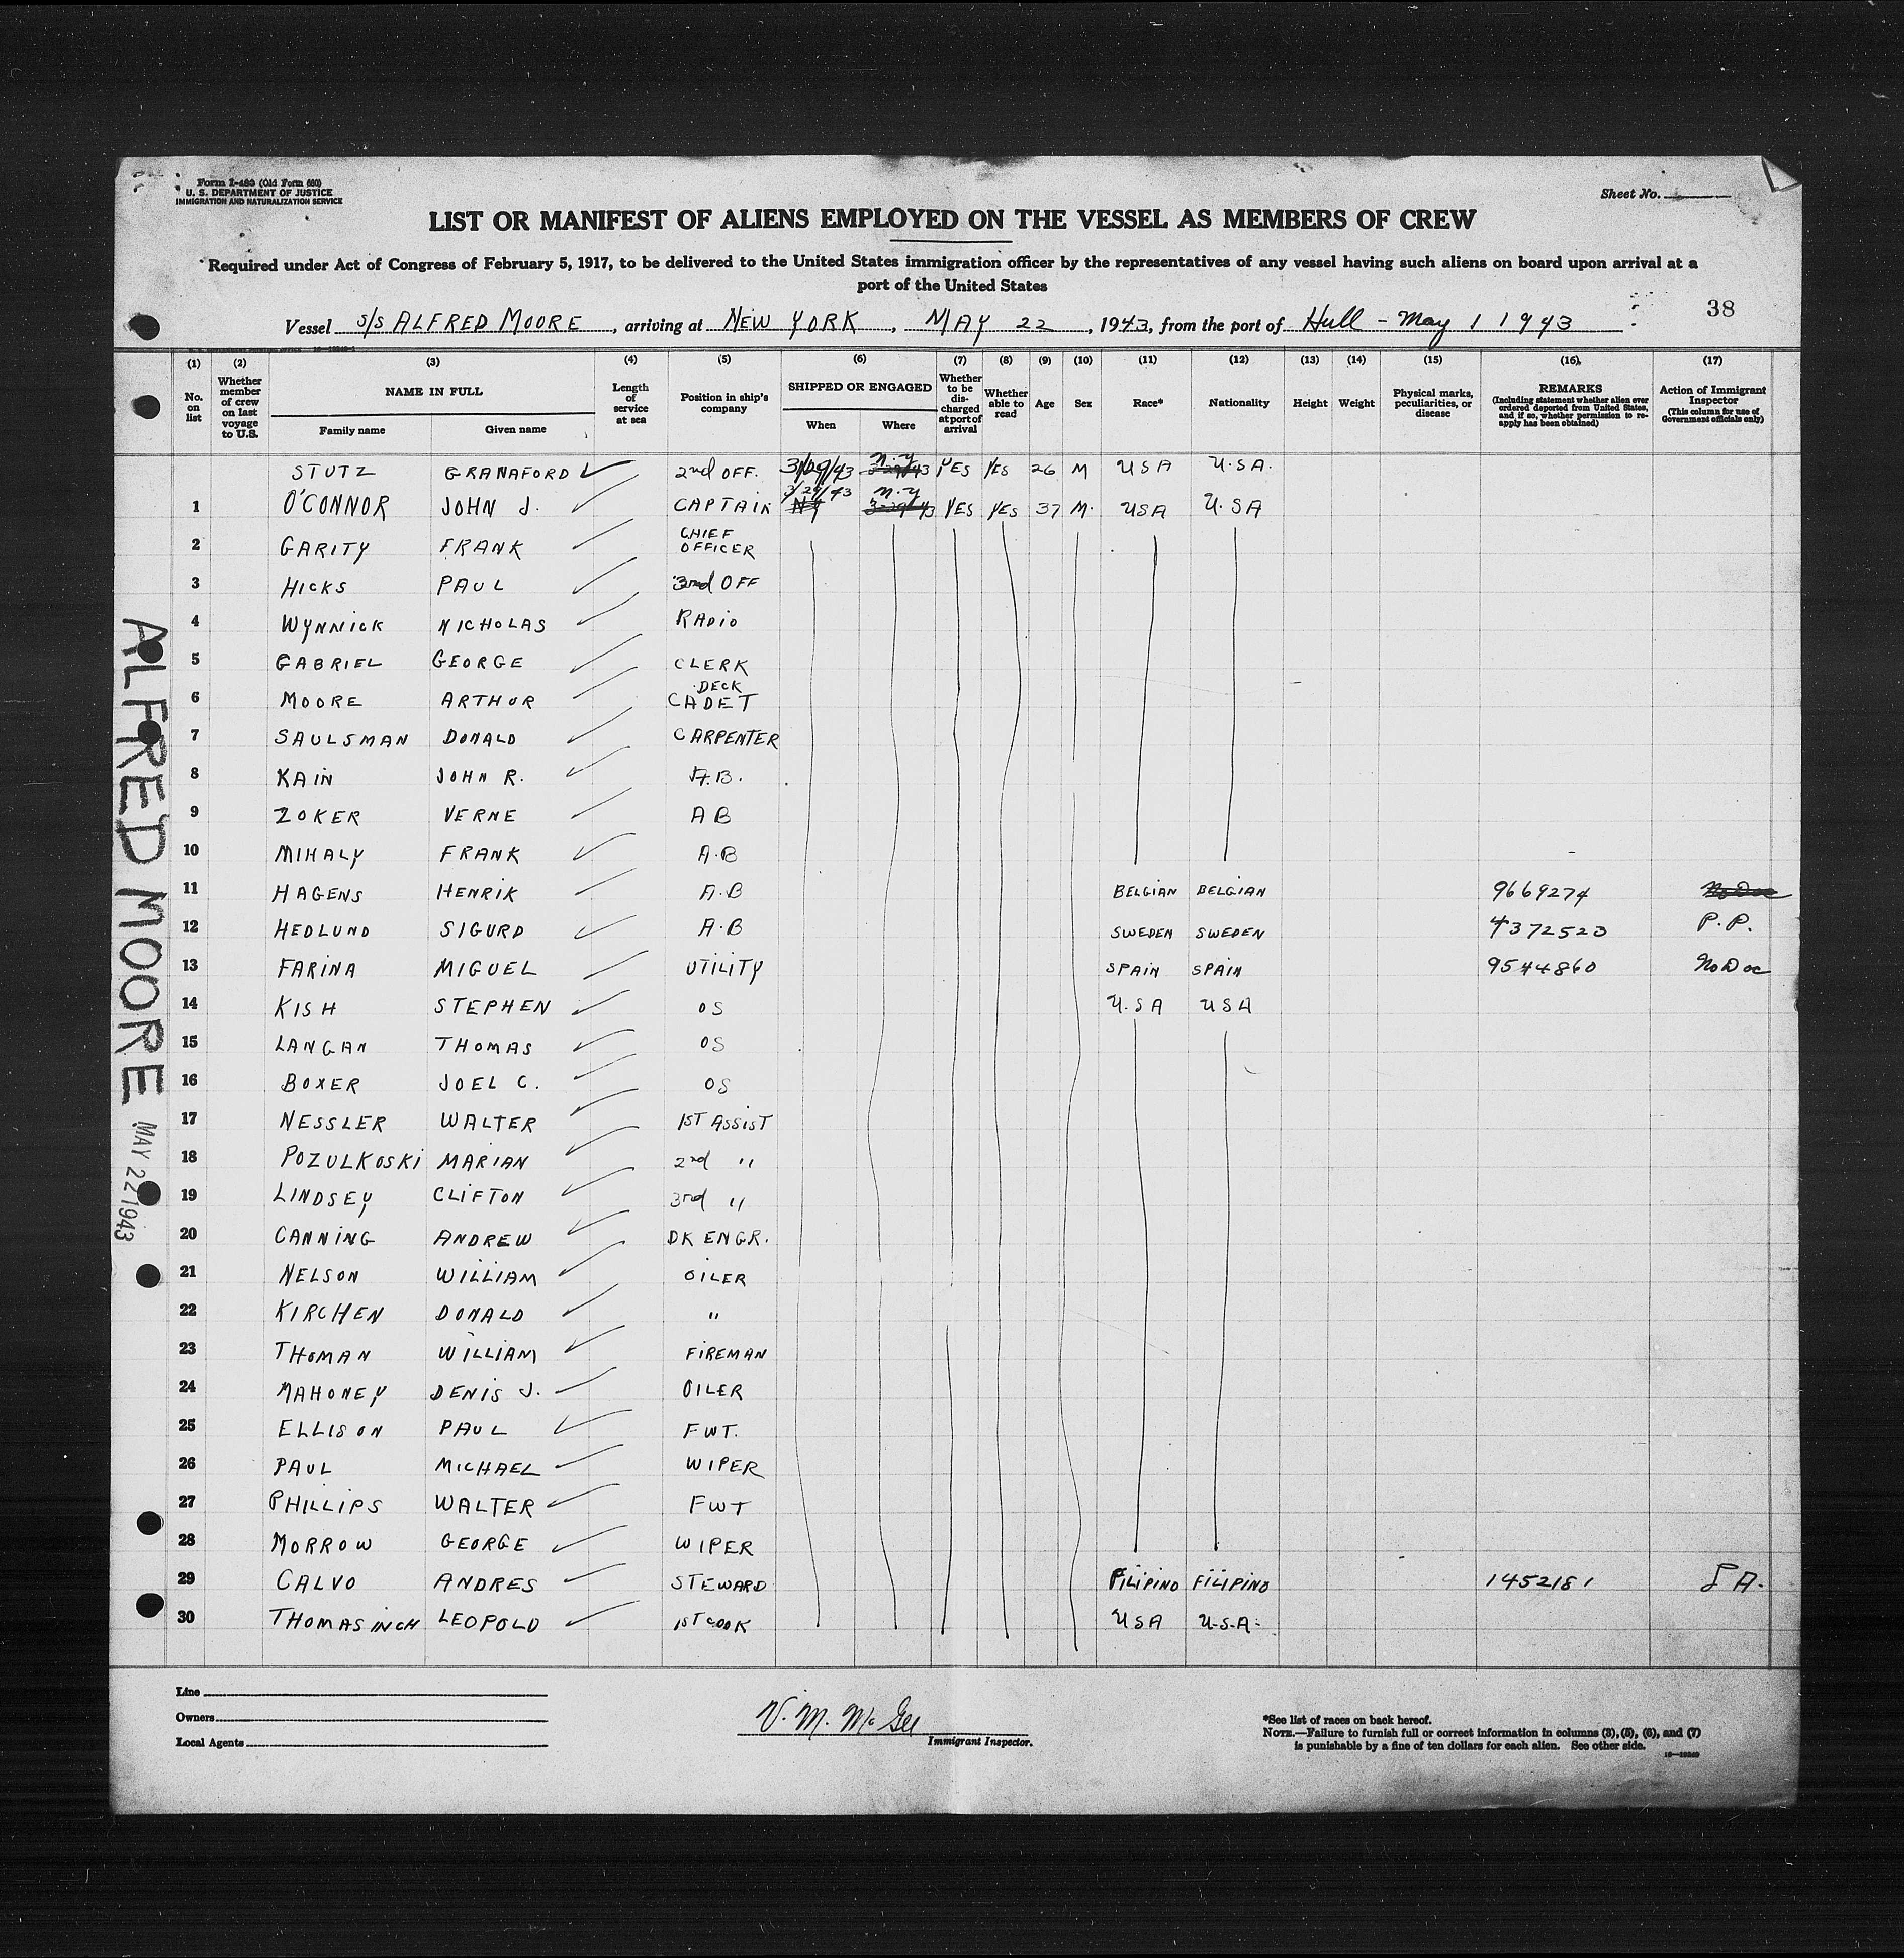 Form I-480 (Old Form 680)
U. S. DEPARTMENT OF JUSTICE
IMMIGRATION AND NATURALIZATION SERVICE
Sheet No.
LIST OR MANIFEST OF ALIENS EMPLOYED ON THE VESSEL AS MEMBERS OF CREW
Required under Act of Congress of February 5, 1917, to be delivered to the United States immigration officer by the representatives of any vessel having such aliens on board upon arrival at a
port of the United States
38
Vessel S/S ALFRED MOORE, arriving at NEW YORK, MAY 22, 1943, from the port of Hull - May 1 1943
(1) (2) (3) (4) (5) (6) (7) (8) (9) (10) (11) (12) (13) (14) (15) (16) (17)
No. on list
Whether member of crew on last voyage to U.S.
NAME IN FULL
Family name Given name
Length of service at sea
Position in ship's company
SHIPPED OR ENGAGED
When Where
Whether to be discharged at port of arrival
Whether able to read
Age
Sex
Race*
Nationality
Height
Weight
Physical marks, peculiarities, or disease
REMARKS
(Including statement whether alien ever ordered deported from United States, and if so, whether permission to reapply has been obtained)
Action of Immigrant Inspector
(This column for use of Government officials only)
STUTZ GRANAFORD ✓ 2nd OFF. 3/29/43 N.Y YES YES 26 M USA U.S.A.
1 O'CONNOR JOHN J. ✓ CAPTAIN 3/29/43 N.Y YES YES 37 M. USA U.SA
2 GARITY FRANK ✓ CHIEF OFFICER
3 HICKS PAUL ✓ 3rd OFF
4 WYNNICK NICHOLAS ✓ RADIO
5 GABRIEL GEORGE ✓ CLERK
6 MOORE ARTHUR ✓ DECK CADET
7 SAULSMAN DONALD ✓ CARPENTER
8 KAIN JOHN R. ✓ A.B.
9 ZOKER VERNE ✓ AB
10 MIHALY FRANK ✓ A.B
11 HAGENS HENRIK ✓ A.B BELGIAN BELGIAN 9669274 No Doc
12 HEDLUND SIGURD ✓ A.B SWEDEN SWEDEN 4372523 P.P.
13 FARINA MIGUEL ✓ UTILITY SPAIN SPAIN 9544860 No Doc
14 KISH STEPHEN ✓ OS U.SA USA
15 LANGAN THOMAS ✓ OS
16 BOXER JOEL C. ✓ OS
17 NESSLER WALTER ✓ 1ST ASSIST
18 POZULKOSKI MARIAN ✓ 2nd "
19 LINDSEY CLIFTON ✓ 3rd "
20 CANNING ANDREW ✓ DK ENGR.
21 NELSON WILLIAM ✓ OILER
22 KIRCHEN DONALD ✓ "
23 THOMAN WILLIAM ✓ FIREMAN
24 MAHONEY DENIS J. ✓ OILER
25 ELLISON PAUL ✓ FWT.
26 PAUL MICHAEL ✓ WIPER
27 PHILLIPS WALTER ✓ FWT
28 MORROW GEORGE ✓ WIPER
29 CALVO ANDRES ✓ STEWARD FILIPINO FILIPINO 1452181
30 THOMASINCH LEOPOLD ✓ 1ST COOK USA U.S.A.
ALFRED MOORE MAY 22 1943
Line
Owners
Local Agents
V. M. McGee
Immigrant Inspector.
*See list of races on back hereof.
NOTE.—Failure to furnish full or correct information in columns (3), (5), (6), and (7)
is punishable by a fine of ten dollars for each alien. See other side.